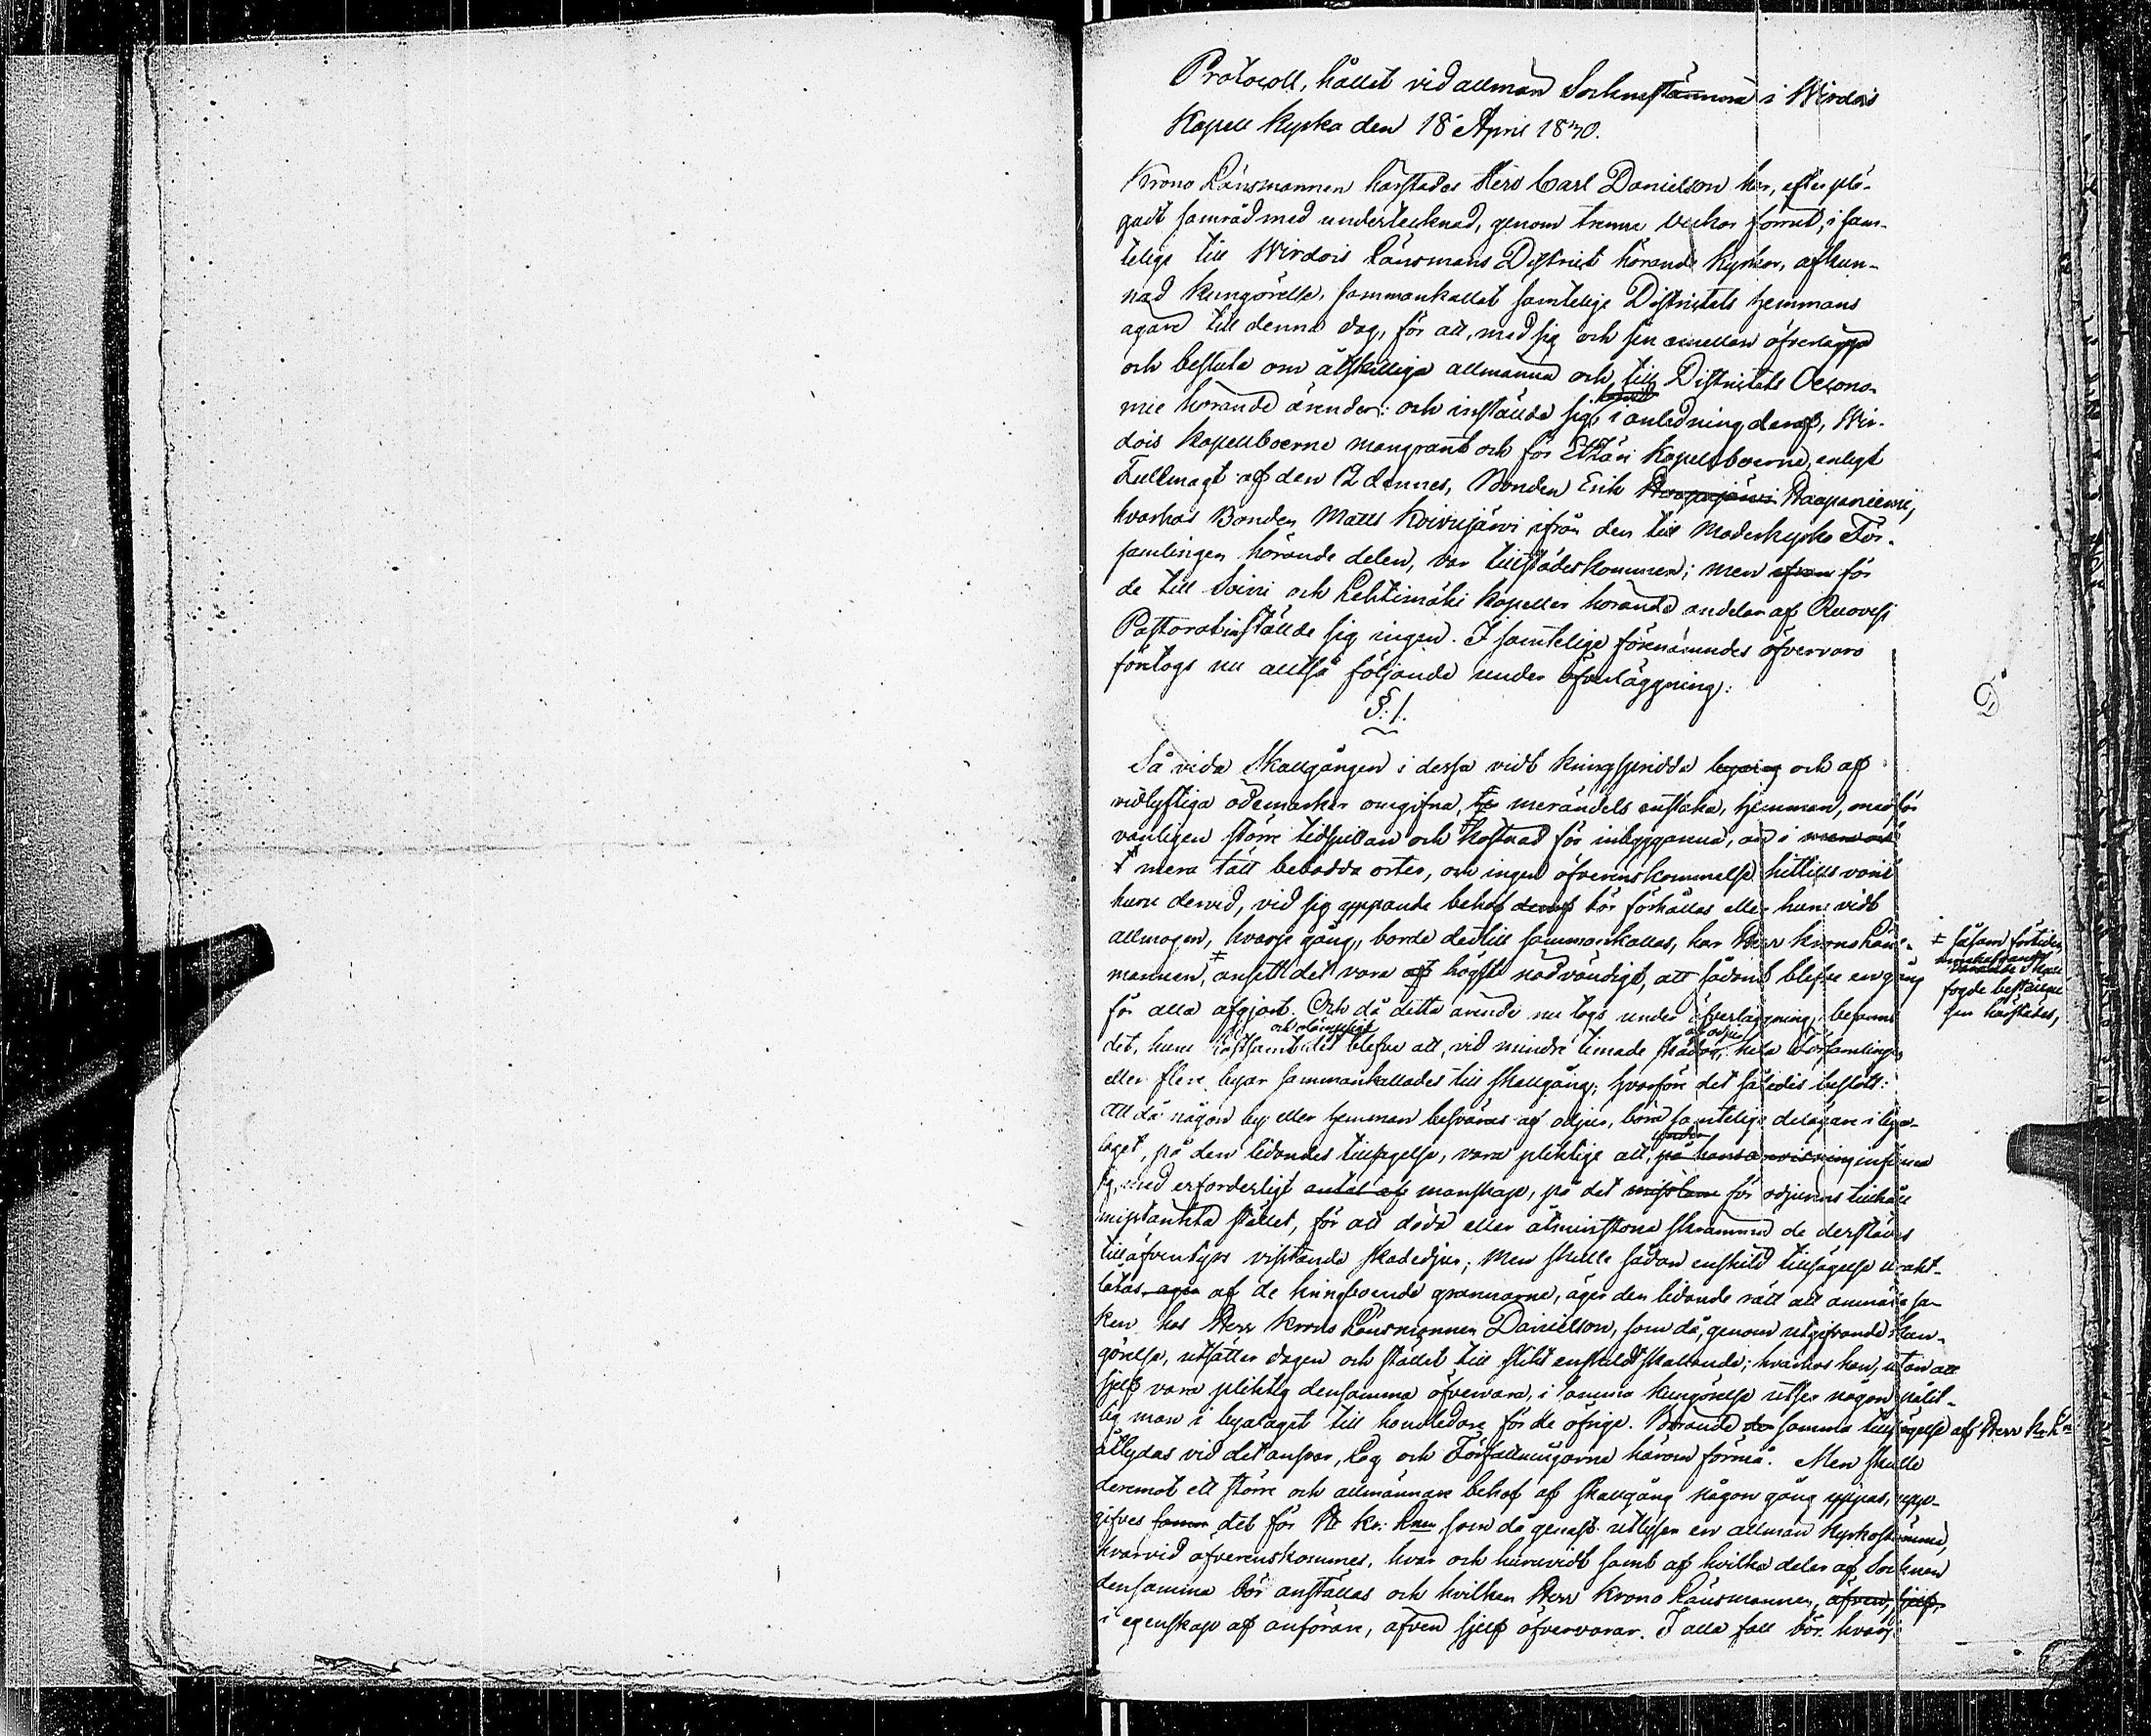 Protocoll, hållet vid allmän Sockenstämma i Wirdois
Kapell Kyrka den 18 April 1870.
Krono Länsmannen härstädes Herr Carl Danielson har, efter plä-
gadt samråd med undertecknad, genom trenne veckor förut, i sam-
telige till Wirdois Länsmans District hörande kyrkor, afkun-
nad kungörelse, sammankallat samtelige Districtets hemmans
ägare till denna dag, för att, med sig och sin emellan öfverlägga
och besluta om åtskilliga allmänna och till Districtets Oecono-
mie hörande ärender: och inställde sig, i anledning deraf, Wir-
dois Kapellboerne mangrant och för Etseri Kapellboerne, enligt
Fullmagt af den 12 dennes, Bonden Erik Raapaniemi,
hvarhos Bonden Matts Koivujärvi ifrån den till Moderkyrko För-
samlingen hörande delen, var tillstädeskommen; men för
de till Soini och Lehtimäki Kapeller hörande andelar af Ruovesi
Pastorat inställde sig ingen. I samtelige förenämndes öfvervaro
företogs nu alltså följande under öfverläggning:
§. 1.
Så vida Skallgången i dessa vidt kringspridda och af
vidlyftiga ödemarker omgifna, merändels enstaka, hemman, medför
vanligen större tidspillan och kostnad för inbyggarena, än i
mera tätt bebodda orter, och ingen öfverenskommelse hittills varit
huru dervid, vid sig yppande behof bör förhållas eller huru vidt
allmogen, hvarje gång, borde dertill sammankallas, har Herr Krono Läns-
mannen, ansett det vara högst nödvändigt, att sådant blefve en gång
såsom
fogde beställnin
gen härstädes,
för alla afgjort. Och då detta ärende nu togs under öfverläggning, befanns
det, huru kostsamt och olämpligt det blefve att, vid mindre timade skador af odjur, hela Församlingen
eller flere byar sammankallades till skallgång; hvarföre det således beslöts:
Att då någon by eller hemman besväras af odjur, böra samtelige delägare i bya-
laget, på den lidandes tillsägelse, vara pliktige att, infinna
sig, med erforderligt manskap, på det för odjurens tillhåll
misstänkta stället, för att döda eller åtminstone skrämma de derstädes
till äfventyrs vistande skadedjur; Men skulle sådan enskild tillsägelse uraht-
låtas af de kringboende grannarne, äger den lidande rätt att anmäla sa-
ken hos Herr Krono Länsmannen Danielson, som då, genom utgifvande kun-
görelse, utsätter dagen och stället till slikt enskildt skallande; hvarhos han, utan att
sjelf vara pliktig densamma öfvervara, i samma kungörelse utser någon pålit-
lig man i byalaget till handledare för de öfrige. Börande samma tillsägelse af Herr
åtlydas vid det ansvar, Lag och Författningarne härom förmå. Men skulle
deremot ett större och allmännare behof af skallgång någon gång yppas, upp-
gifves det för Hr Kr: Lnen som då genast utlyser en allmän kyrkostämma,
hvarvid öfverenskommes, hvar och huruvidt samt af hvilka delar af Socknen
densamma bör anställas och hvilken Herr Krono Länsmannen,
i egenskap af anförare, äfven sjelf öfvervarar. I alla fall bör hvarje